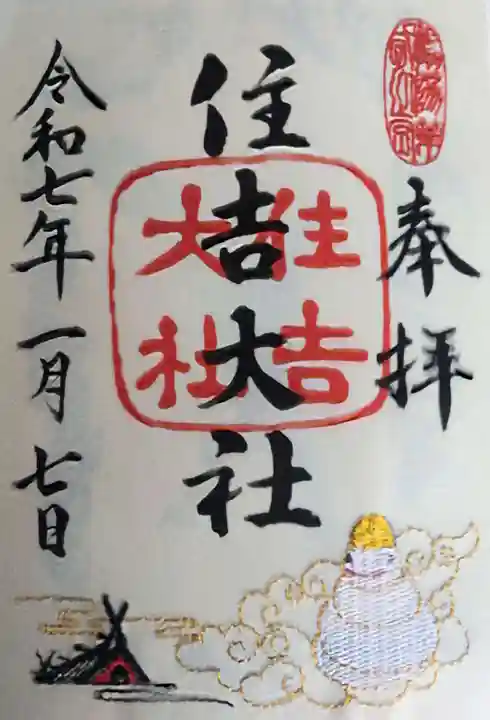 奉拝
住吉大社
住吉
大社
令和七年一月七日